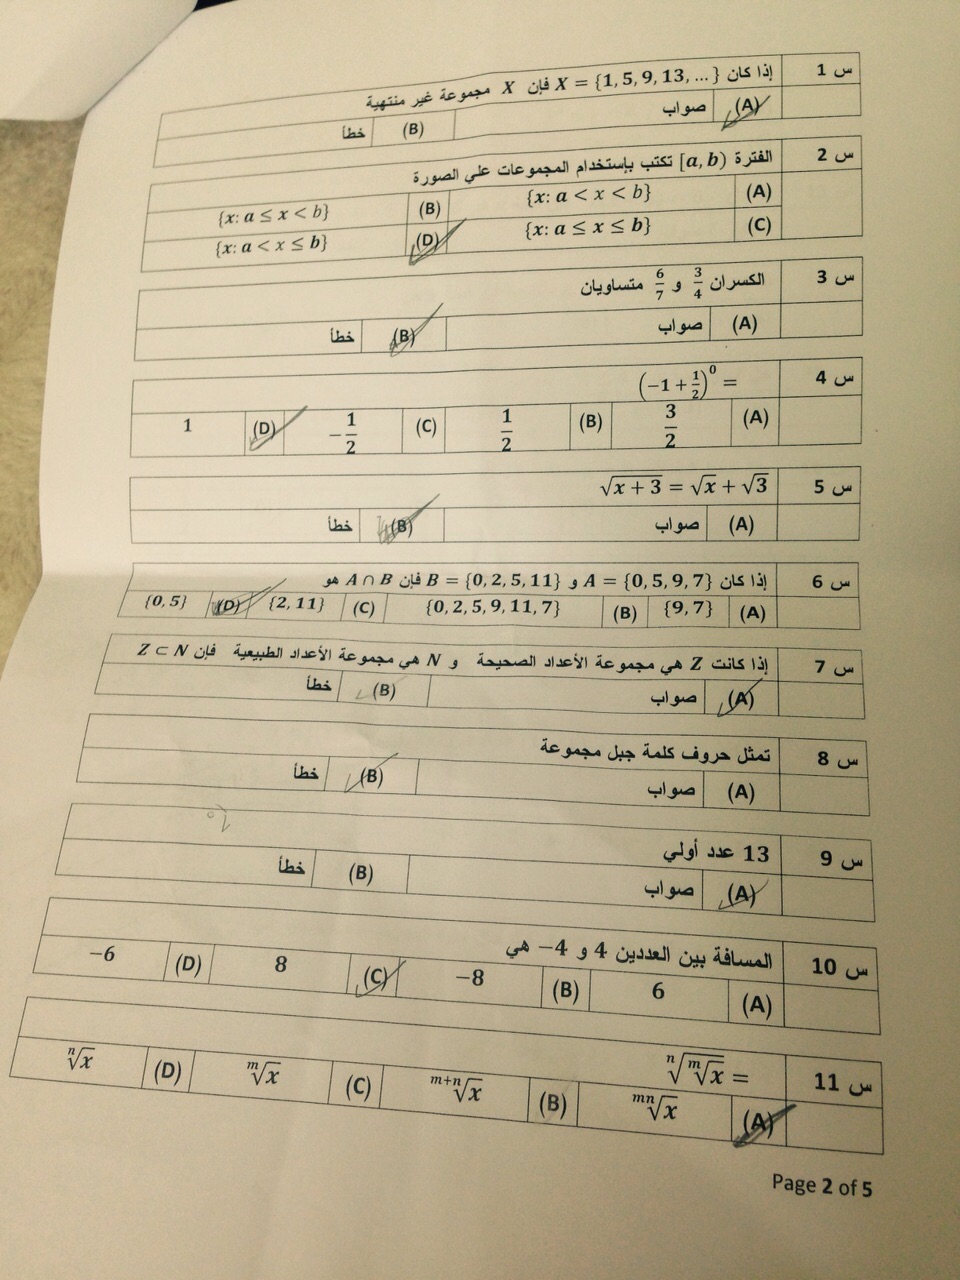 س 1 إذا كان X = {1, 5, 9, 13, ...} فإن X مجموعة غير منتهية
(A) صواب (B) خطأ
س 2 الفترة [a, b) تكتب بإستخدام المجموعات علي الصورة
(A) {x: a < x < b} (B) {x: a ≤ x < b}
(C) {x: a ≤ x ≤ b} (D) {x: a < x ≤ b}
س 3 الكسران 3/4 و 6/7 متساويان
(A) صواب (B) خطأ
س 4 (−1 + 1/2)^0 =
(A) 3/2 (B) 1/2 (C) −1/2 (D) 1
س 5 √(x + 3) = √x + √3
(A) صواب (B) خطأ
س 6 إذا كان A = {0, 5, 9, 7} و B = {0, 2, 5, 11} فإن A ∩ B هو
(A) {9, 7} (B) {0, 2, 5, 9, 11, 7} (C) {2, 11} (D) {0, 5}
س 7 إذا كانت Z هي مجموعة الأعداد الصحيحة و N هي مجموعة الأعداد الطبيعية فإن Z ⊂ N
(A) صواب (B) خطأ
س 8 تمثل حروف كلمة جبل مجموعة
(A) صواب (B) خطأ
س 9 13 عدد أولي
(A) صواب (B) خطأ
س 10 المسافة بين العددين 4 و 4− هي
(A) 6 (B) −8 (C) 8 (D) −6
س 11 ⁿ√(ᵐ√x) =
(A) ᵐⁿ√x (B) ᵐ⁺ⁿ√x (C) ᵐ√x (D) ⁿ√x
Page 2 of 5